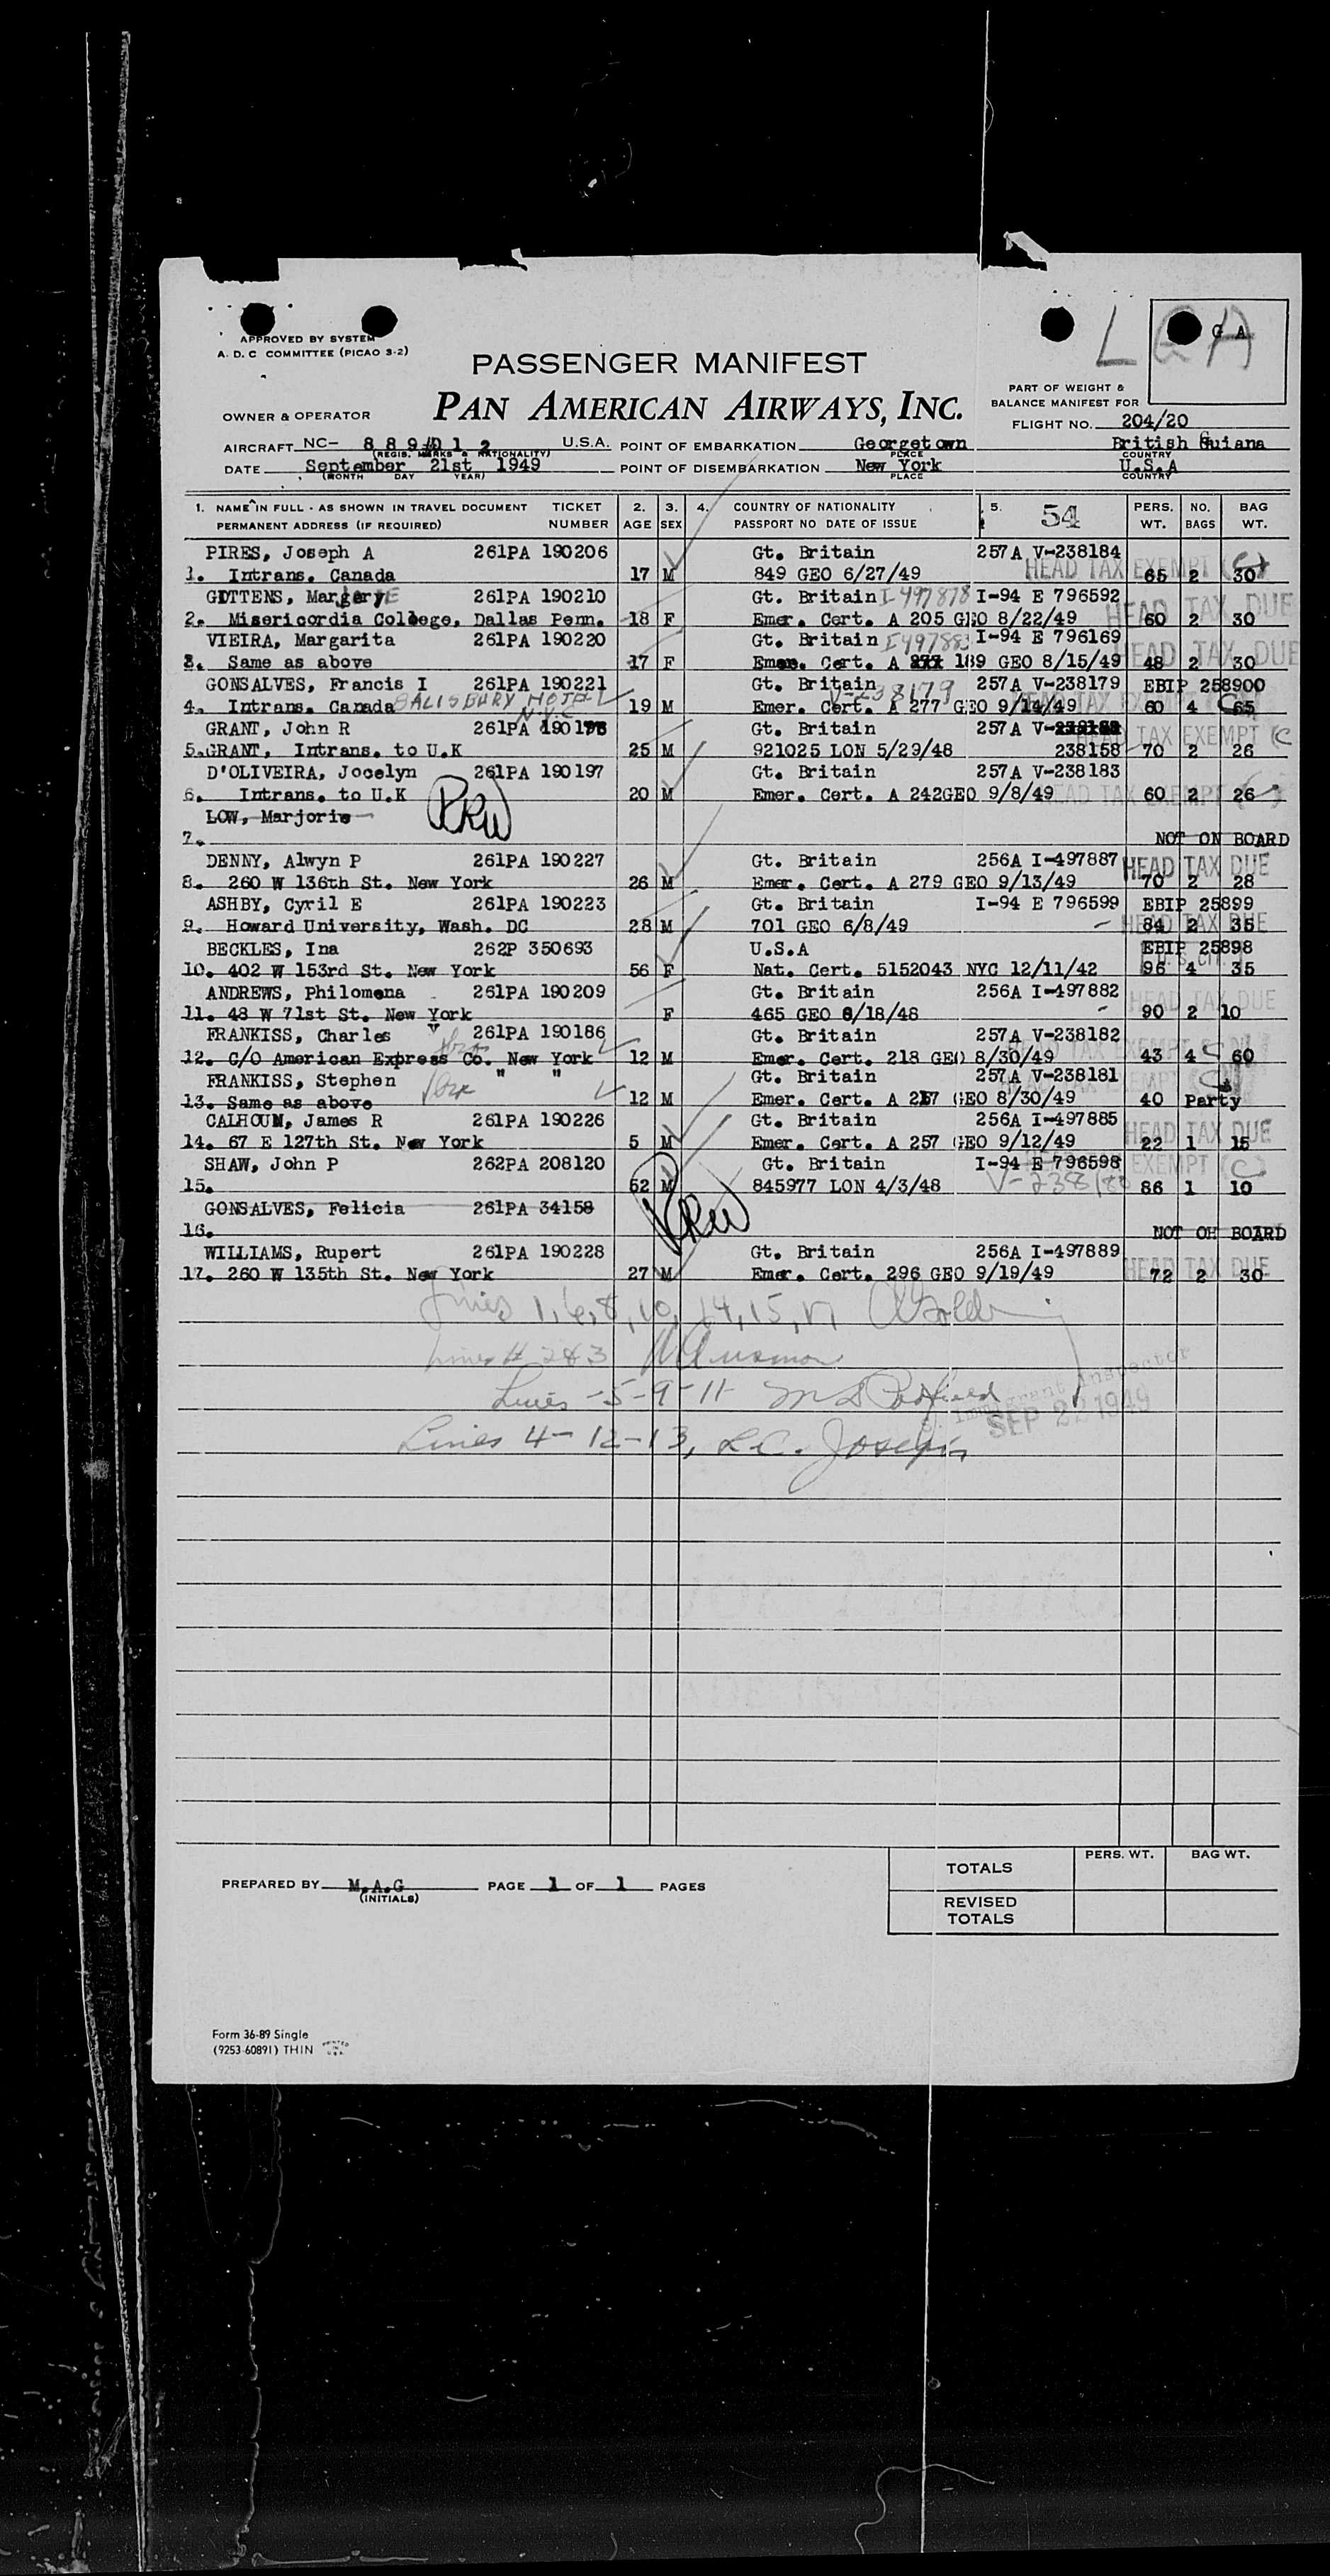 L G A
G A
APPROVED BY SYSTEM
A. D. C COMMITTEE (PICAO 3-2)
PASSENGER MANIFEST
PAN AMERICAN AIRWAYS, INC.
PART OF WEIGHT &
BALANCE MANIFEST FOR
OWNER & OPERATOR
FLIGHT NO. 204/20
AIRCRAFT NC- U.S.A. POINT OF EMBARKATION Georgetown British Guiana
(REGIS. MARKS & NATIONALITY) PLACE COUNTRY
DATE September 21st 1949 POINT OF DISEMBARKATION New York U.S.A
(MONTH DAY YEAR) PLACE COUNTRY
1. NAME IN FULL - AS SHOWN IN TRAVEL DOCUMENT TICKET 2. 3. 4. COUNTRY OF NATIONALITY 5. 54 PERS. NO. BAG
PERMANENT ADDRESS (IF REQUIRED) NUMBER AGE SEX PASSPORT NO DATE OF ISSUE WT. BAGS WT.
PIRES, Joseph A 261PA 190206 Gt. Britain 257A V-238184
1. Intrans. Canada 17 M 849 GEO 6/27/49 HEAD TAX EXEMPT (C) 65 2 30
GITTENS, Margery 261PA 190210 Gt. Britain I-497878 I-94 E 796592
2. Misericordia College, Dallas Penn. 18 F Emer. Cert. A 205 GEO 8/22/49 HEAD TAX DUE 60 2 30
VIEIRA, Margarita 261PA 190220 Gt. Britain I-94 E 796169
3. Same as above 17 F Emer. Cert. A 189 GEO 8/15/49 HEAD TAX DUE 48 2 30
GONSALVES, Francis I 261PA 190221 Gt. Britain V-238179 257A V-238179 EBIP 258900
4. Intrans. Canada SALISBURY HOTEL N.Y.C 19 M Emer. Cert. A 277 GEO 9/14/49 60 4 65
GRANT, John R 261PA Gt. Britain 257A V-
5. GRANT, Intrans. to U.K 25 M 921025 LON 5/29/48 238158 TAX EXEMPT (C 70 2 26
D'OLIVEIRA, Jocelyn 261PA 190197 Gt. Britain 257A V-238183
6. Intrans. to U.K 20 M Emer. Cert. A 242GEO 9/8/49 HEAD TAX EXEMPT 60 2 26
LOW, Marjorie
7. NOT ON BOARD
DENNY, Alwyn P 261PA 190227 Gt. Britain 256A I-497887 HEAD TAX DUE
8. 260 W 136th St. New York 26 M Emer. Cert. A 279 GEO 9/13/49 70 2 28
ASHBY, Cyril E 261PA 190223 Gt. Britain I-94 E 796599 EBIP 25899
9. Howard University, Wash. DC 28 M 701 GEO 6/8/49 HEAD TAX DUE 84 2 35
BECKLES, Ina 262P 350693 U.S.A EBIP 25898
10. 402 W 153rd St. New York 56 F Nat. Cert. 5152043 NYC 12/11/42 96 4 35
ANDREWS, Philomena 261PA 190209 Gt. Britain 256A I-497882 HEAD TAX DUE
11. 48 W 71st St. New York F 465 GEO 8/18/48 90 2 10
FRANKISS, Charles 261PA 190186 Gt. Britain 257A V-238182
12. C/O American Express Co. New York 12 M Emer. Cert. 218 GEO 8/30/49 43 4 60
FRANKISS, Stephen " " Gt. Britain 257A V-238181
13. Same as above 12 M Emer. Cert. A 217 GEO 8/30/49 40 Party
CALHOUN, James R 261PA 190226 Gt. Britain 256A I-497885
14. 67 E 127th St. New York 5 M Emer. Cert. A 257 GEO 9/12/49 HEAD TAX DUE 22 1 15
SHAW, John P 262PA 208120 Gt. Britain I-94 E 796598 EXEMPT (C)
15. 62 M 845977 LON 4/3/48 V-238180 86 1 10
GONSALVES, Felicia 261PA 34158
16. NOT OH BOARD
WILLIAMS, Rupert 261PA 190228 Gt. Britain 256A I-497889
17. 260 W 135th St. New York 27 M Emer. Cert. 296 GEO 9/19/49 HEAD TAX DUE 72 2 30
Lines 1, 6, 8, 10, 14, 15, 17
Lines # 2 & 3
Lines - 5 - 9 - 11
Immigrant Inspector
SEP 22 1949
Lines 4 - 12 - 13, L.C. Joseph
TOTALS PERS. WT. BAG WT.
PREPARED BY M.A.G PAGE 1 OF 1 PAGES
(INITIALS)
REVISED
TOTALS
Form 36-89 Single
(9253-60891) THIN PRINTED IN U.S.A.